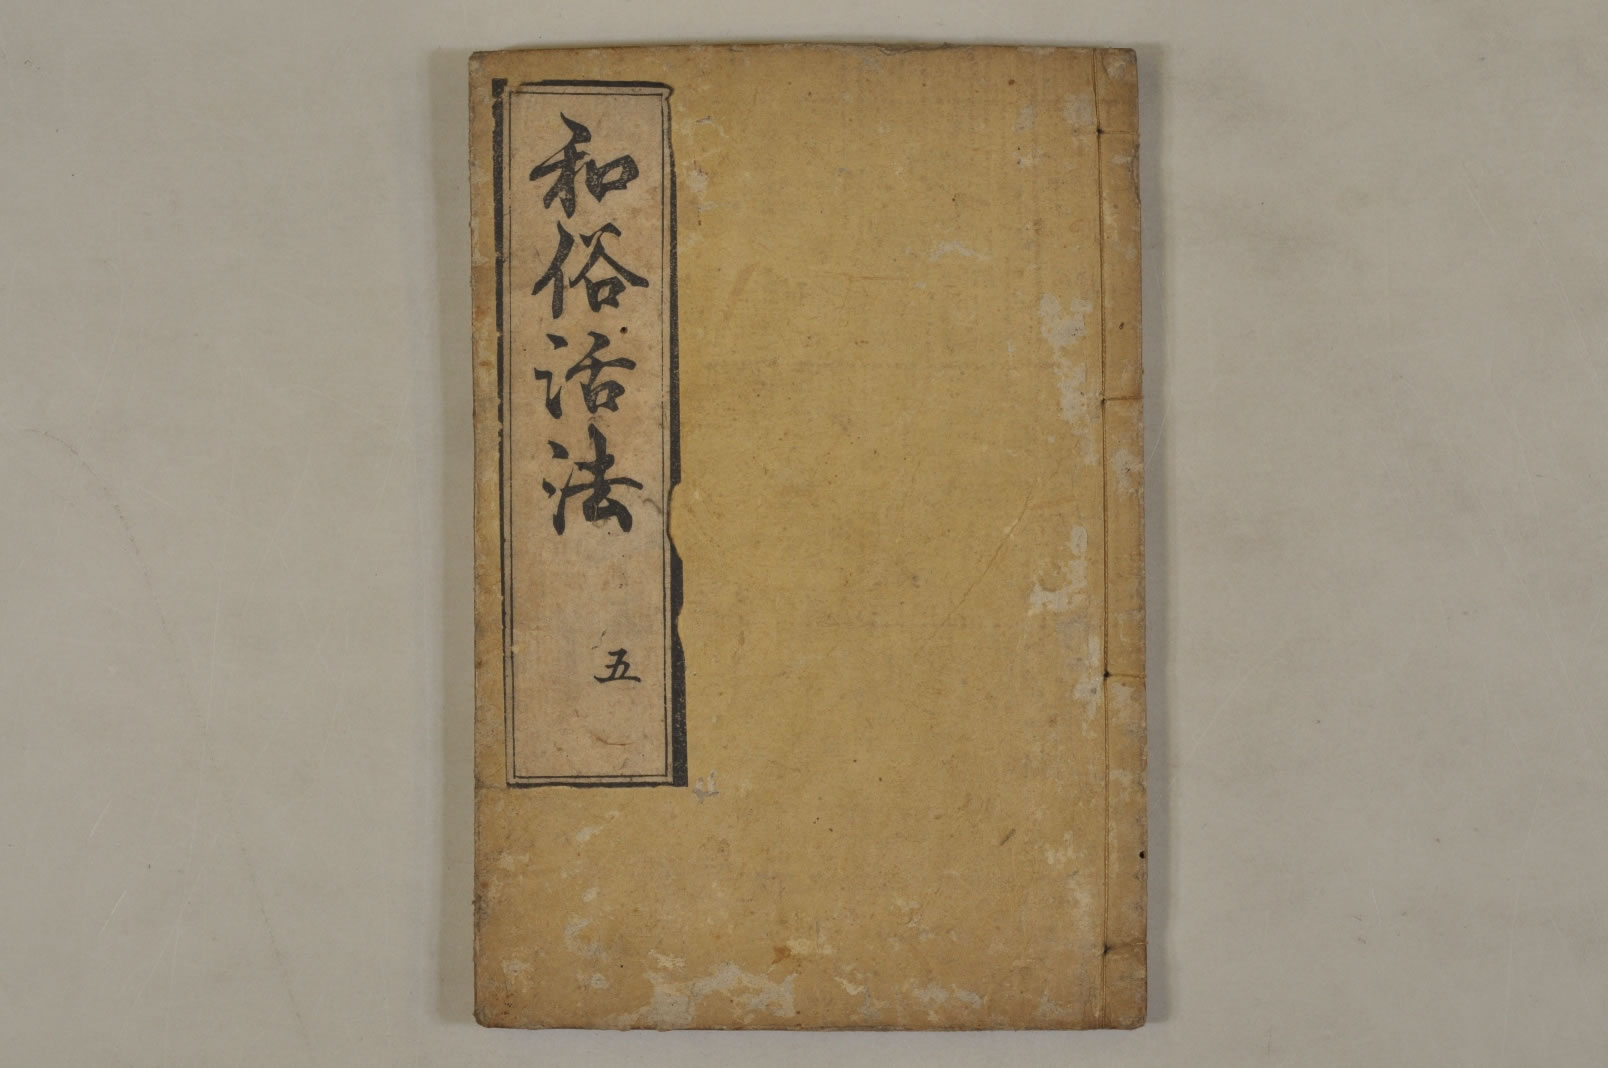 和俗活法
五